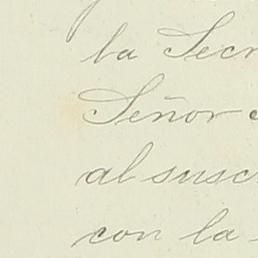 la Secr
Señor
al susc
con la